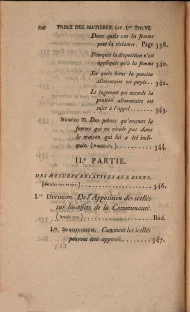 TABLE DES MATIERES. Liv. Ier Tit. VI.
Dans quels cas la femme
peut la réclamer. Page 338.
Pourquoi la disposition n'est
appliquée qu'à la femme 340.
Sur quels biens la pension
alimentaire est payée. 342.
Le jugement qui accorde la
pension alimentaire est
sujet à l'appel. 343.
Numéro II. Des peines qu'encourt la
femme qui ne réside pas dans
la maison qui lui a été indi-
quée. 344.
II.e PARTIE.
DES MESURES RELATIVES AUX BIENS.
346.
I.re Division. De l'Apposition des scellés
sur les effets de la Communauté.
Ibid.
I.re Subdivision. Comment les scellés
peuvent être apposés. 347.